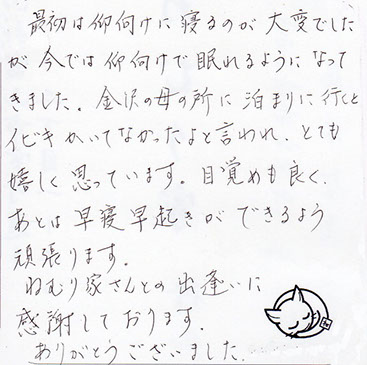 最初は仰向けに寝るのが大変でした
が今では仰向けで眠れるようになって
きました。金沢の母の所に泊まりに行くと
イビキかいてなかったよと言われ、とても
嬉しく思っています。目覚めも良く、
あとは早寝早起きができるよう
頑張ります。
ねむり家さんとの出逢いに
感謝しております。
ありがとうございました。